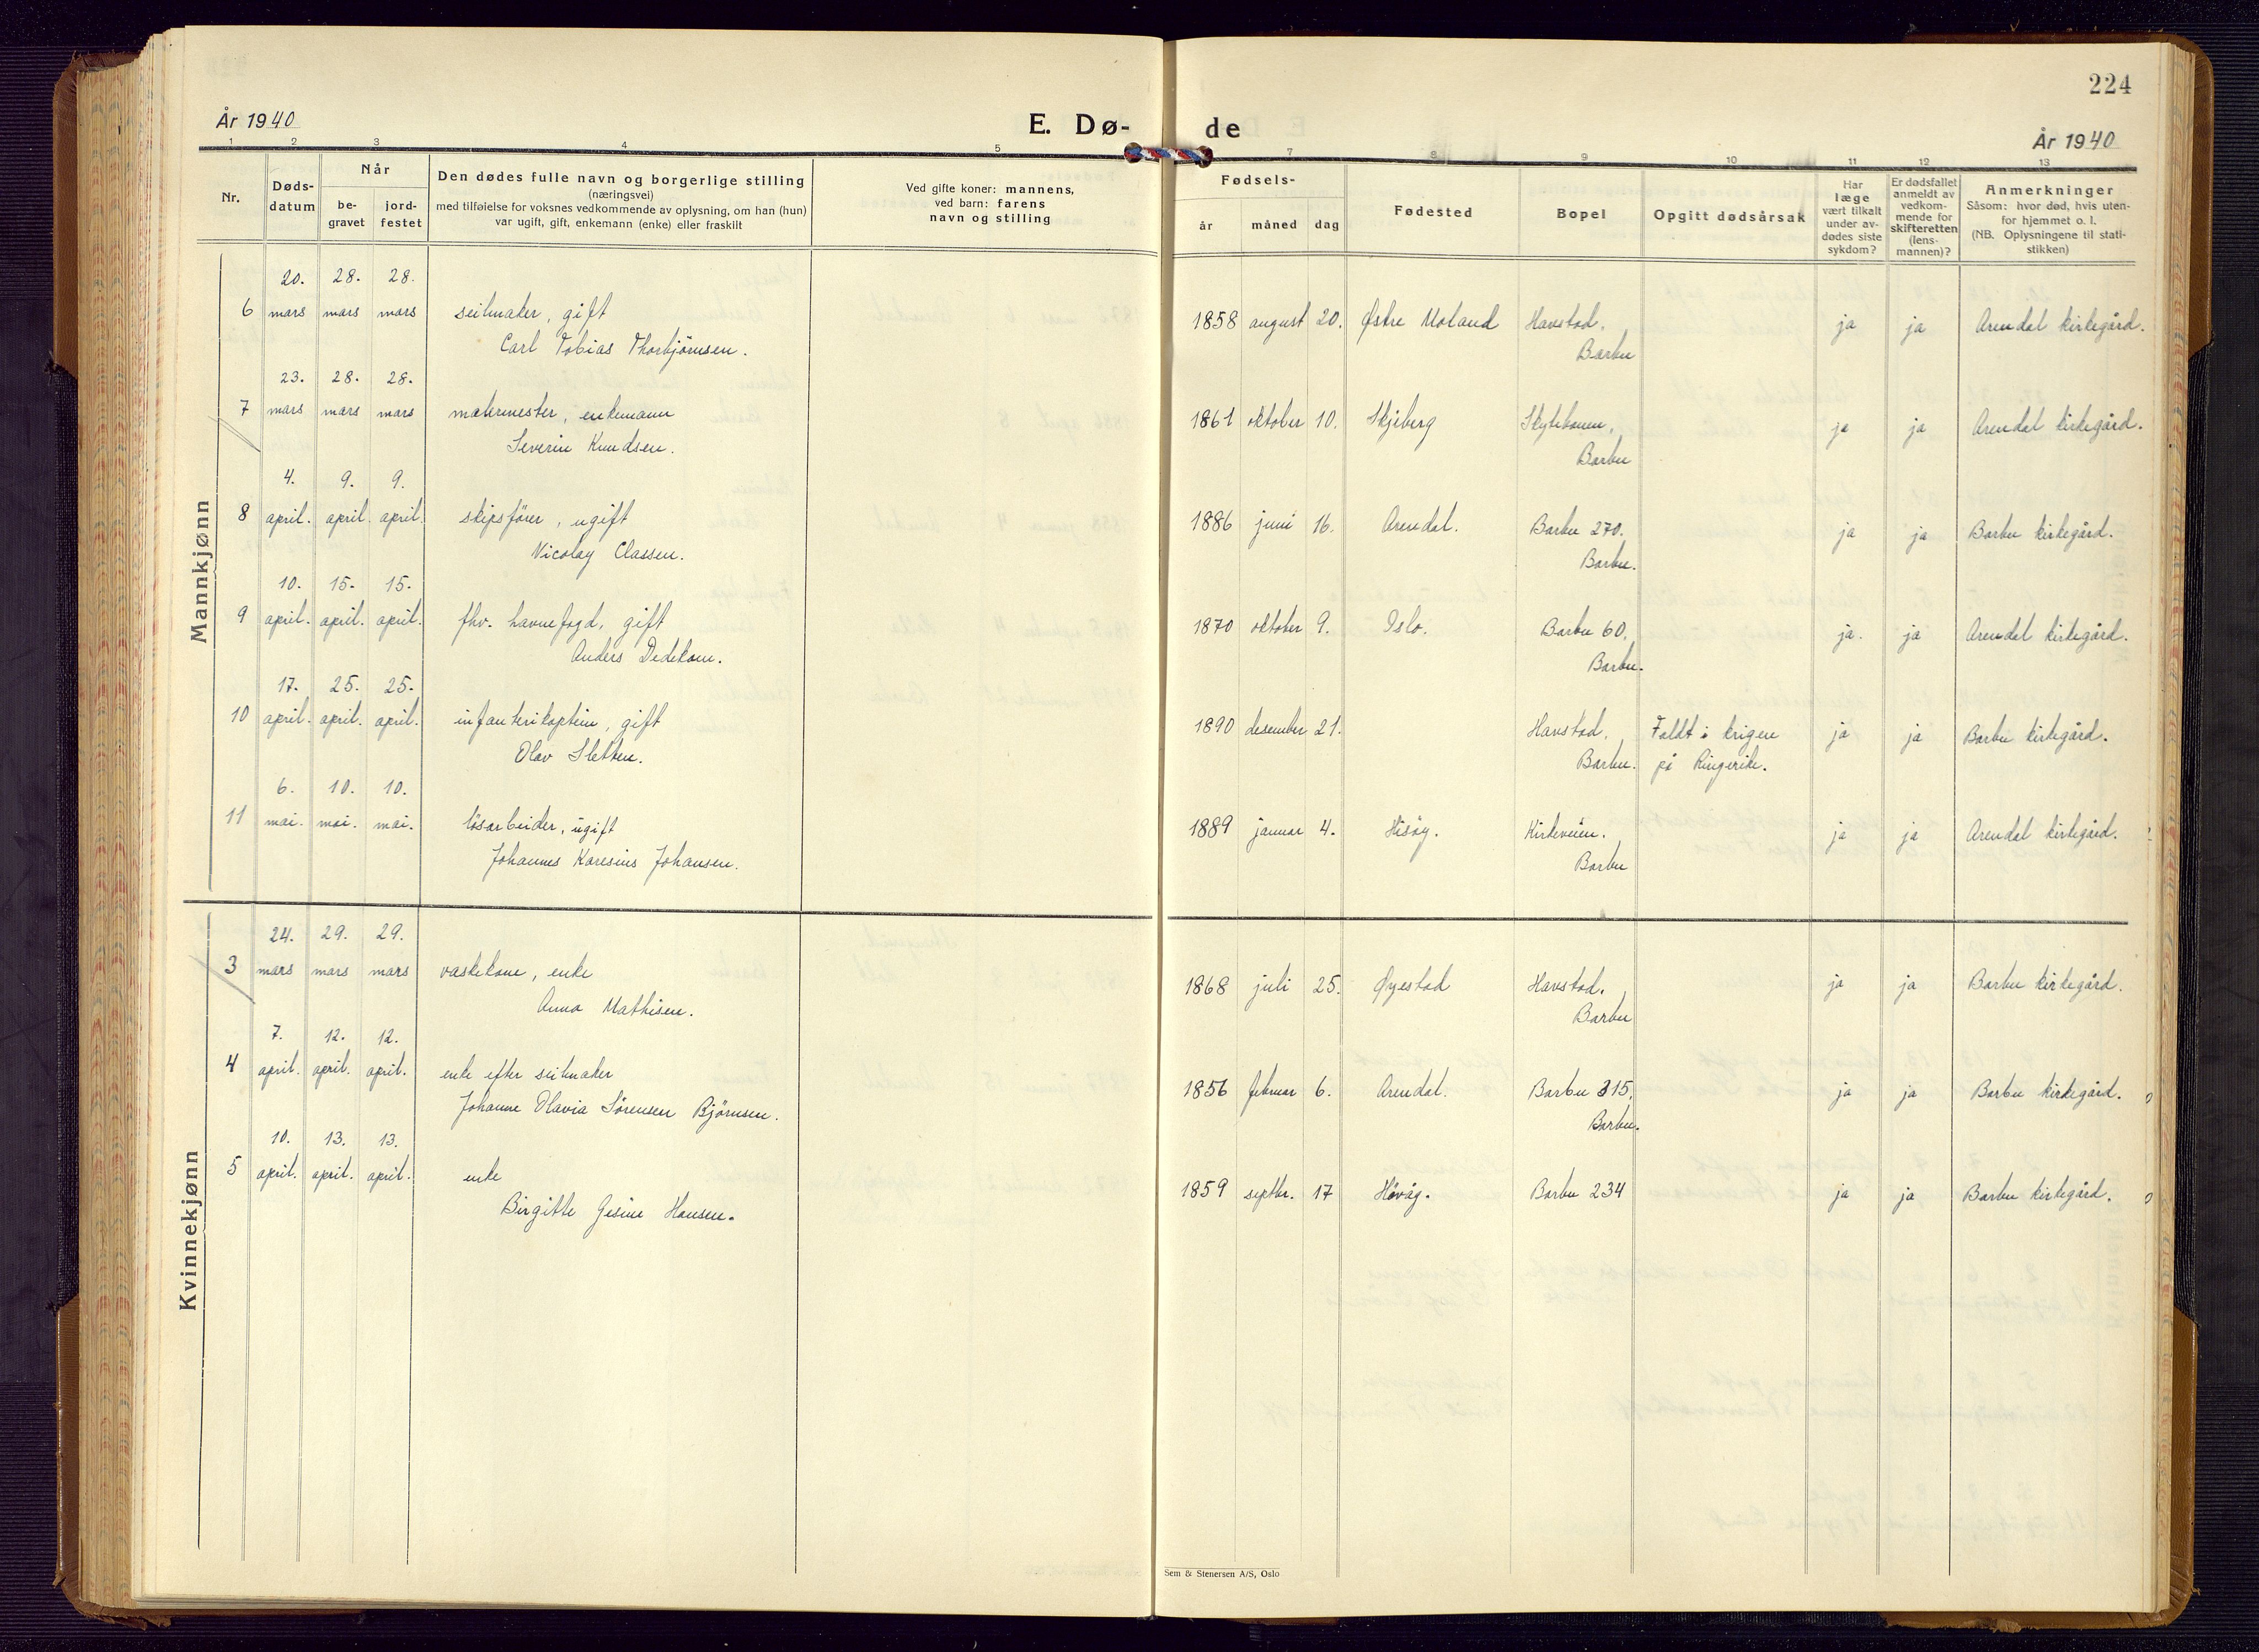 224
År 1940
E. Dø-
de
År 1940
1 2 3 4 5 7 8 9 10 11 12 13
Nr.
Døds-
datum
Når
be-
gravet
jord-
festet
Den dødes fulle navn og borgerlige stilling
(næringsvei)
med tilføielse for voksnes vedkommende av oplysning, om han (hun)
var ugift, gift, enkemann (enke) eller fraskilt
Ved gifte koner: mannens,
ved barn: farens
navn og stilling
Fødsels-
år måned dag
Fødested
Bopel
Opgitt dødsårsak
Har
læge
vært tilkalt
under av-
dødes siste
sykdom?
Er dødsfallet
anmeldt av
vedkom-
mende for
skifteretten
(lens-
mannen)?
Anmerkninger
Såsom: hvor død, hvis uten-
for hjemmet o. l.
(NB. Oplysningene til stati-
stikken)
Mannkjønn
20. 28. 28.
6 mars mars mars seilmaker, gift 1858 august 20. Østre Moland Havstad. ja ja Arendal kirkegård.
Carl Tobias Thorbjörnsen. Barbu
23. 28. 28.
7 mars mars mars malermester, enkemann 1861 oktober 10. Skjeberg Skytebanen, ja ja Arendal kirkegård.
Severin Knudsen. Barbu
4. 9. 9.
8 april. april. april. skipsförer, ugift 1886 juni 16. Arendal. Barbu 270. ja ja Barbu kirkegård.
Nicolay Classen. Barbu.
10. 15. 15.
9 april. april. april. fhv. havnefogd, gift 1870 oktober 9. Oslo. Barbu 60. ja. ja Arendal kirkegård.
Anders Dedekam. Barbu.
17. 25. 25.
10 april. april. april. infanterikaptein, gift 1890 desember 21. Havstad. Faldt i krigen ja ja Barbu kirkegård.
Olav Sletten. Barbu. på Ringerike.
6. 10. 10.
11 mai. mai. mai. lösarbeider, ugift 1889 januar 4. Hisöy. Kirkeveien. ja ja Arendal kirkegård.
Johannes Karesius Johansen. Barbu
Kvinnekjønn
24. 29. 29.
3 mars mars mars vaskekone, enke 1868 juli 25. Øyestad Havstad. ja ja Barbu kirkegård.
Anna Mathisen. Barbu
7. 12. 12.
4 april. april. april. enke efter seilmaker 1856 februar 6. Arendal. Barbu 315. ja ja Barbu kirkegård.
Johanne Olavia Sörensen Björnsen. Barbu.
10. 13. 13.
5 april. april. april. enke 1859 septbr. 17 Hövåg. Barbu 234 ja ja Barbu kirkegård.
Birgitte Gesine Hansen.
Sem & Stenersen A/S, Oslo